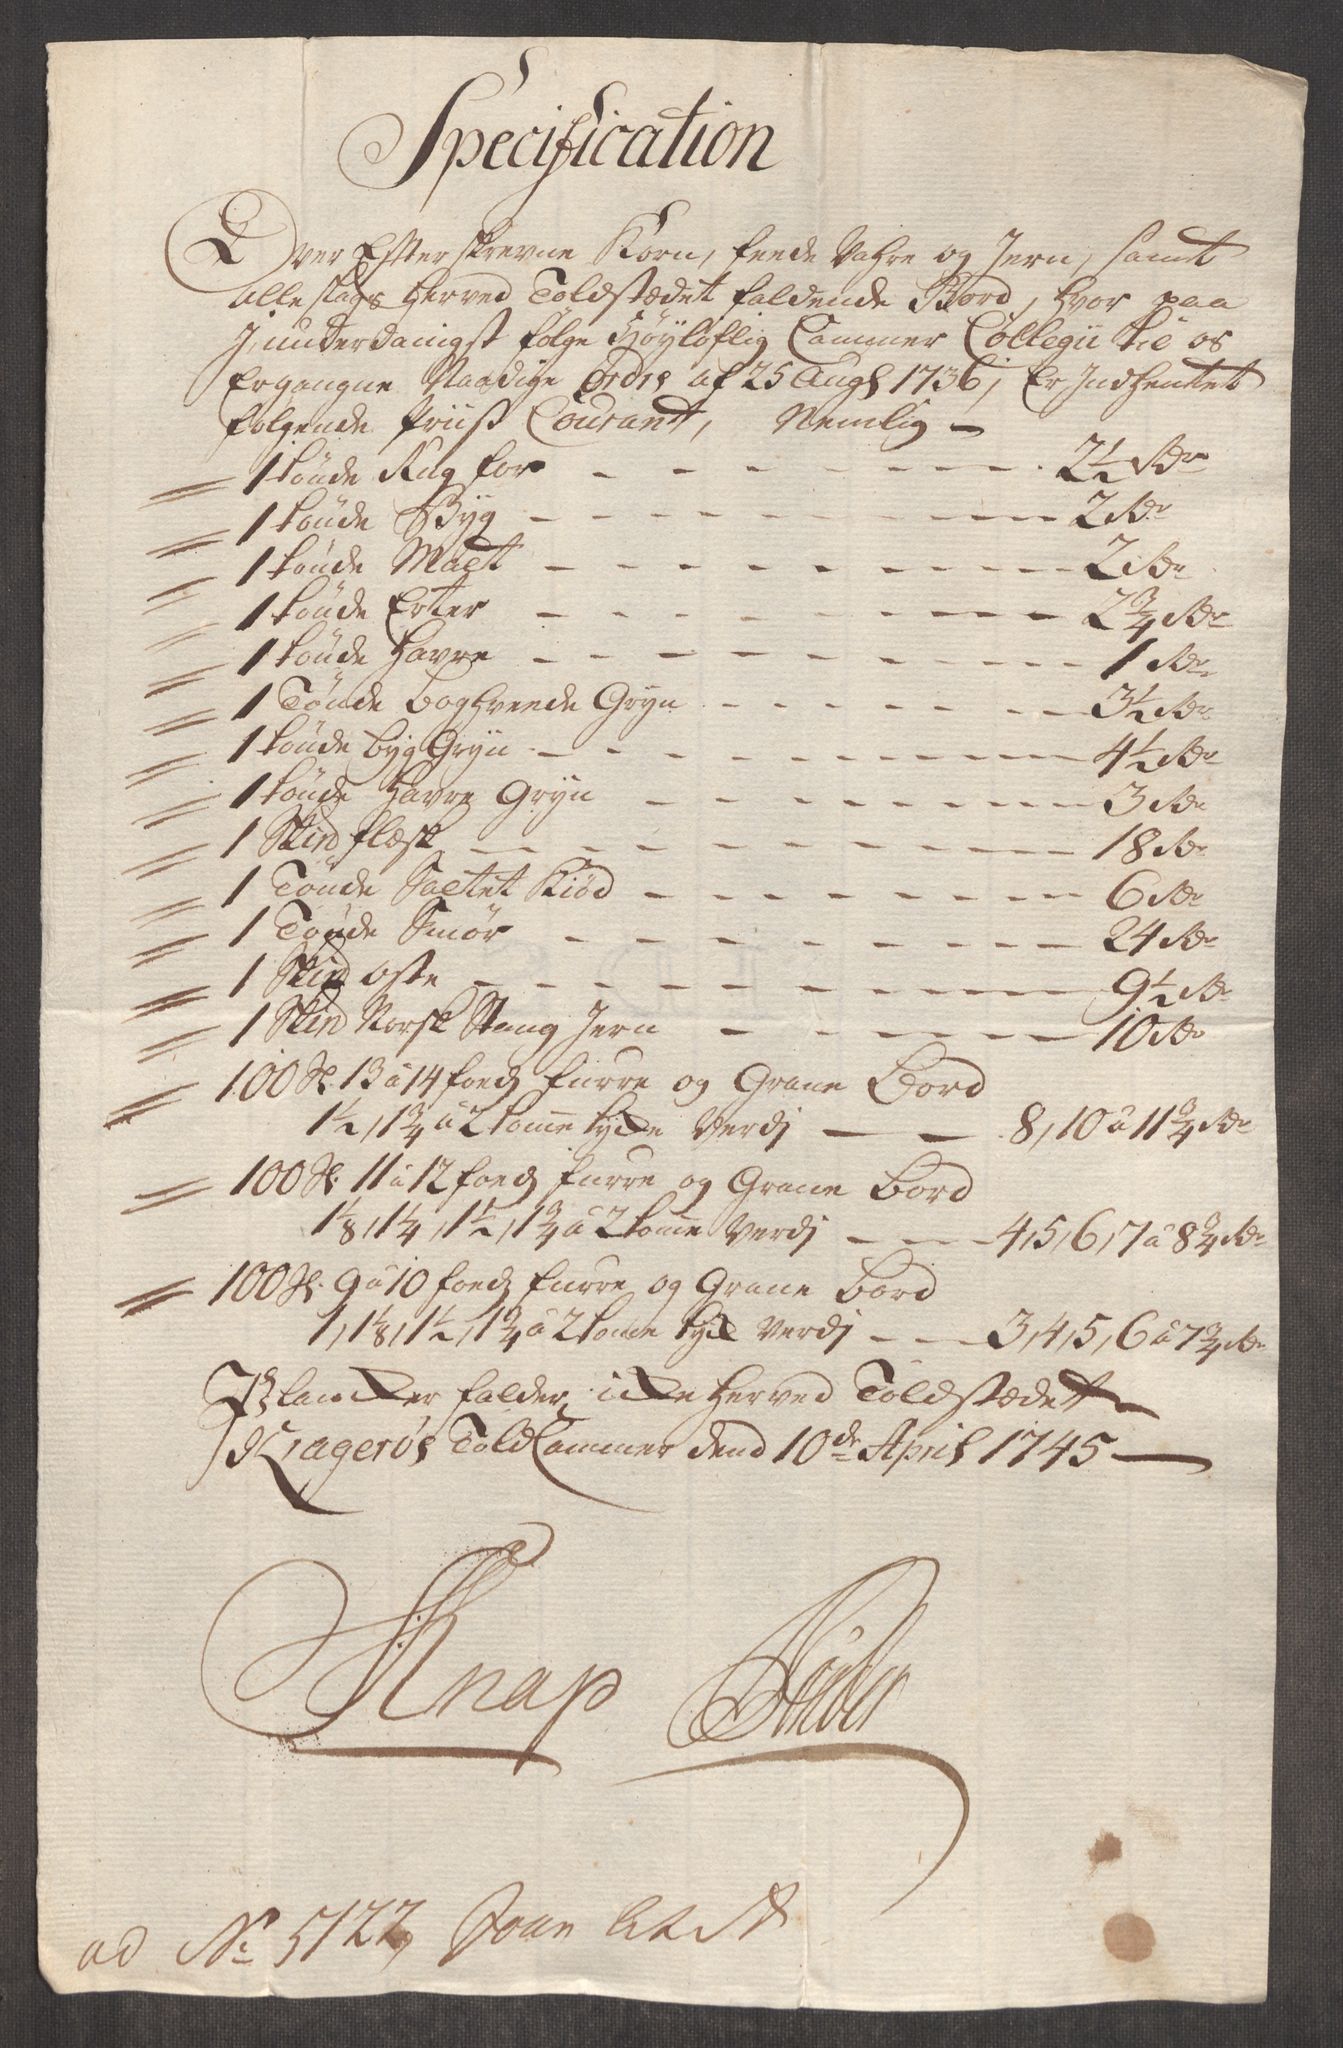 Specification
Over Efterskrevne Korn, feede Vahre og Jern, samt
alle slags herved Toldstædet faldende Bord, hvor paa
J underdanigst følge Höyloflig Cammer Collegii til os
Ergangne Naadige Ordre af 25 Augl 1736, Er Jndhentet
følgende Priiß Courant, Nemlig
1 tönde Rug for 2½ Rdr
1 tönde Byg 2 Rdr
1 tönde Malt 2 Rdr
1 tönde Erter 2¾ Rdr
1 tönde Havre 1 Rdr
1 Tönde boghveede Gryn 3½ Rdr
1 tönde byg Gryn 4½ Rdr
1 tönde Havre Gryn 3 Rdr
1 Sk℔ flesk 18 Rdr
1 Tönde Saltet Kiöd 6 Rdr
1 Tönde Smör 24 Rdr
1 Sk℔ oste 9½ Rdr
1 Sk℔ Norsk Stang Jern 10 Rdr
100 St. 13 a 14 foeds furre og Grane Bord
1½, 1¾ a 2 tomme tycke Verdj 8, 10 a 11¾ Rdr
100 St. 11 a 12 foeds furre og Grane Bord
1⅛, 1¼, 1½, 1¾ a 2 tomme Verdj 4, 5, 6, 7 a 8¾ Rdr
100 St. 9 a 10 foeds furre og Grane Bord
1, 1⅛, 1½, 1¾ a 2 tomme tyck Verdj 3, 4, 5, 6 a 7¾ Rdr
Plancker falder icke herved Toldstædet
Kragerös Told Cammer dend 10de April 1745
Knap
ad No 5122,